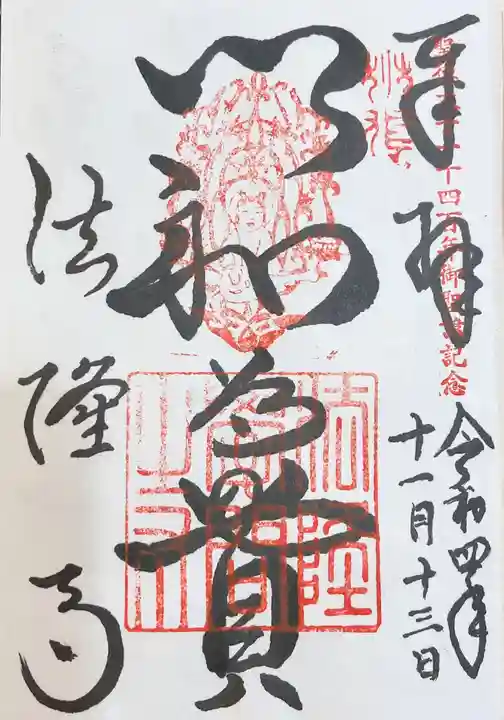 奉拝
聖徳太子千四百年御聖諱記念
令和四年
十一月十三日
以和為貴
法隆寺